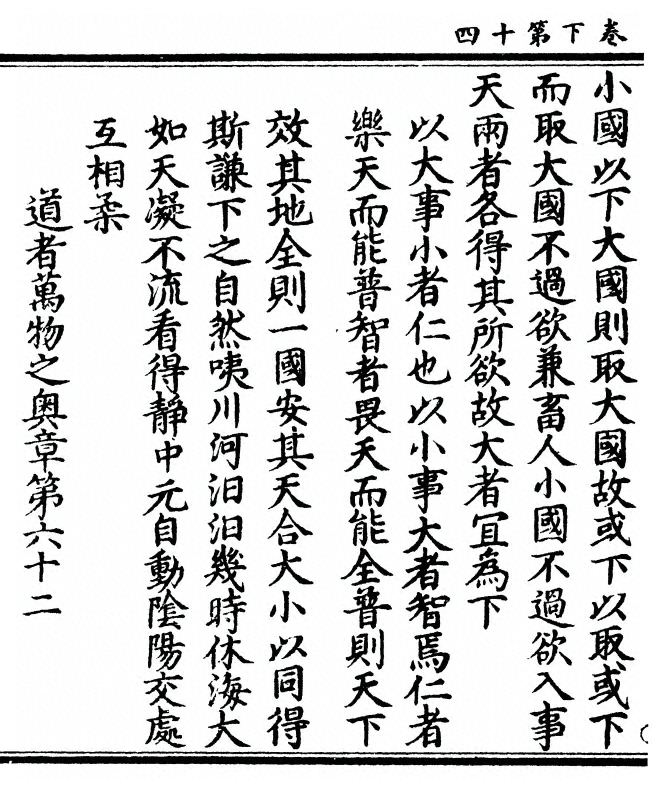 卷下第十四
小國以下大國則取大國故或下以取或下
而取大國不過欲兼畜人小國不過欲入事
天兩者各得其所欲故大者宜為下
以大事小者仁也以小事大者智焉仁者
樂天而能普智者畏天而能全普則天下
效其地全則一國安其天合大小以同得
斯謙下之自然咦川河汩汩幾時休海大
如天凝不流看得靜中元自動陰陽交處
互相柔
道者萬物之奧章第六十二